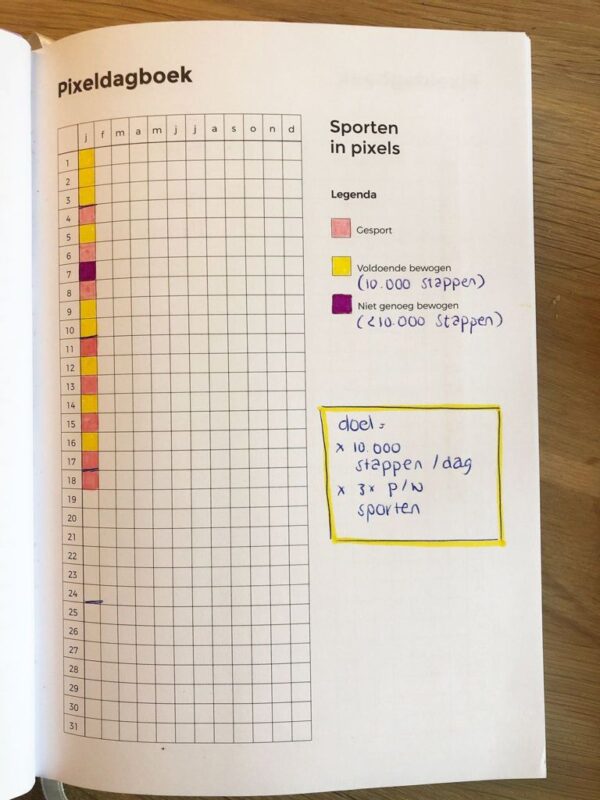 Pixeldagboek
j f m a m j j a s o n d
1
2
3
4
5
6
7
8
9
10
11
12
13
14
15
16
17
18
19
20
21
22
23
24
25
26
27
28
29
30
31
Sporten
in pixels
Legenda
Gesport
Voldoende bewogen
(10.000 stappen)
Niet genoeg bewogen
(<10.000 stappen)
doel =
x 10.000
stappen / dag
x 3x p/w
sporten